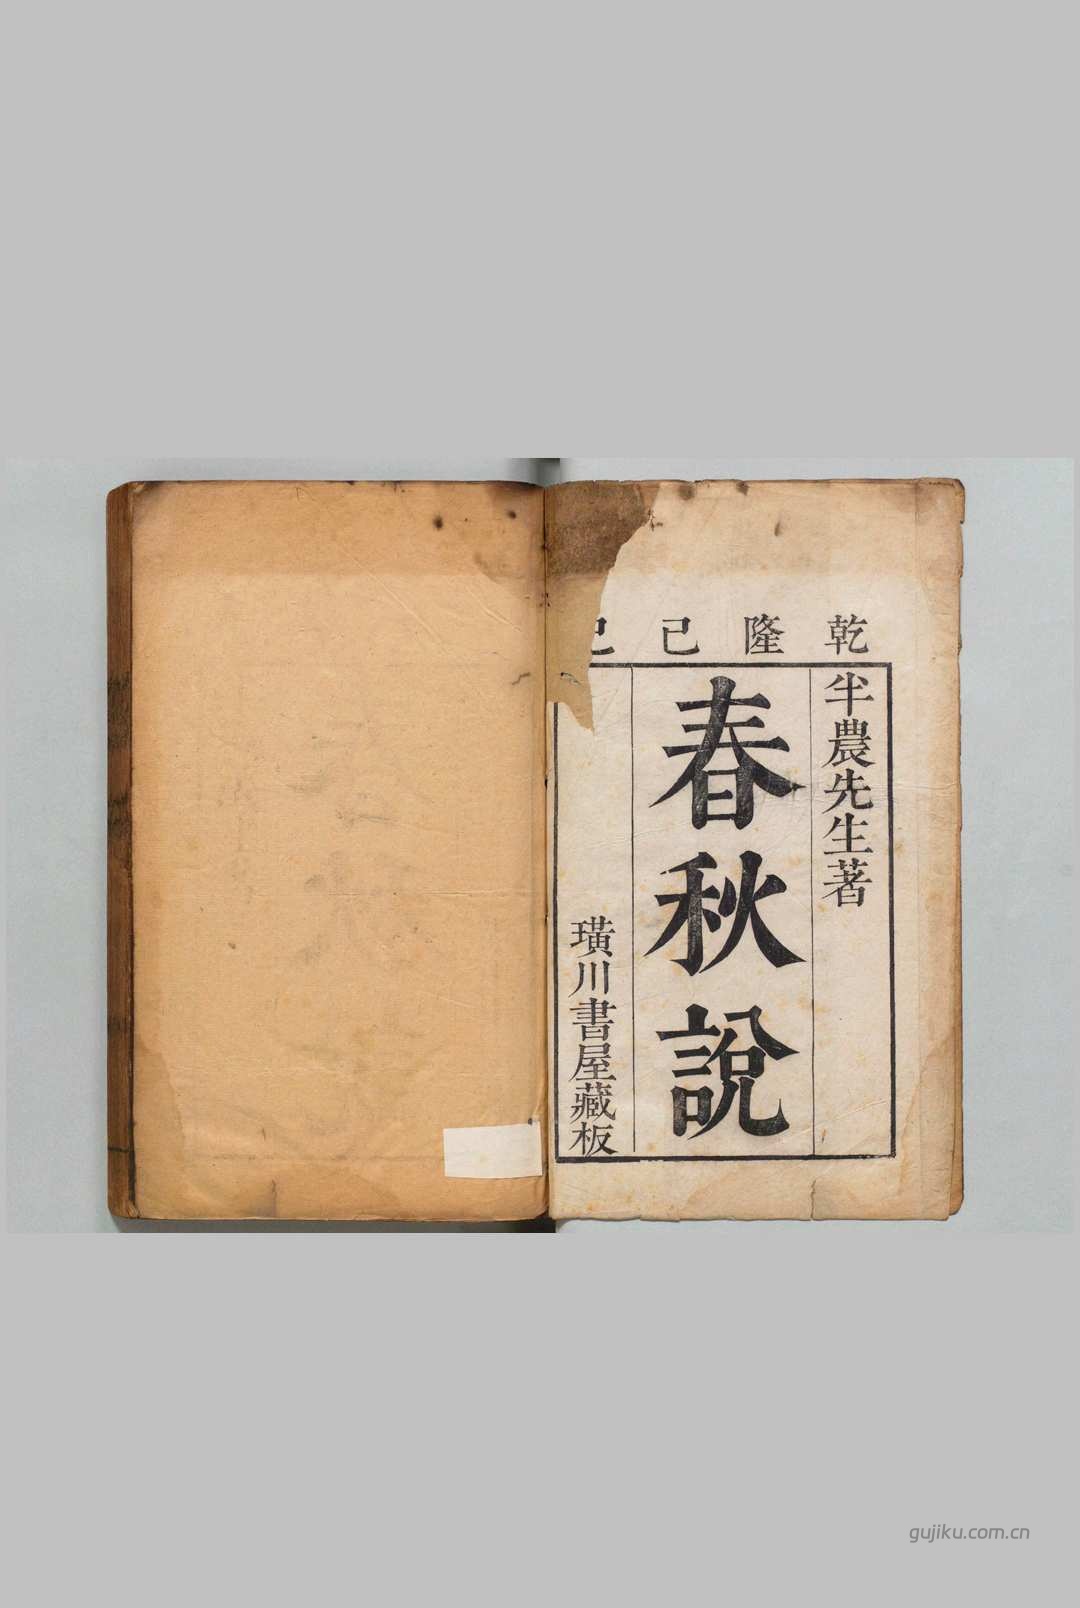 乾隆己巳
半農先生著
春秋說
璜川書屋藏板
gujiku.com.cn